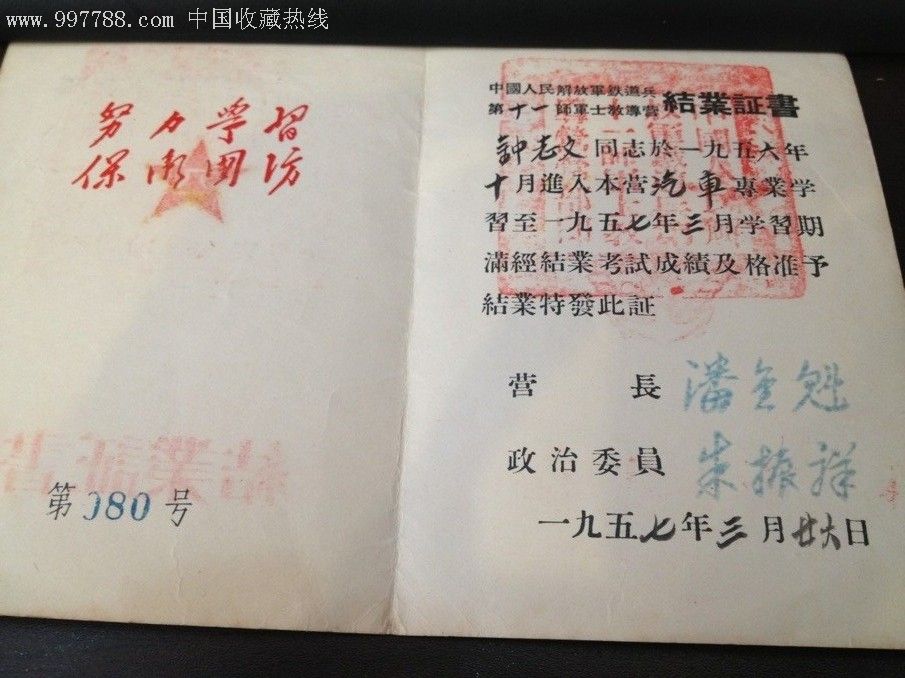 www.997788.com 中国收藏热线
努力学習
保衛国防
第080号
中國人民解放軍鉄道兵
第十一師軍士教導营 結業証書
鈡志文同志於一九五六年
十月進入本营汽車專業学
習至一九五七年三月学習期
滿經結業考試成績及格准予
結業特發此証
营長 潘金魁
政治委員 朱振祥
一九五七年三月廿六日